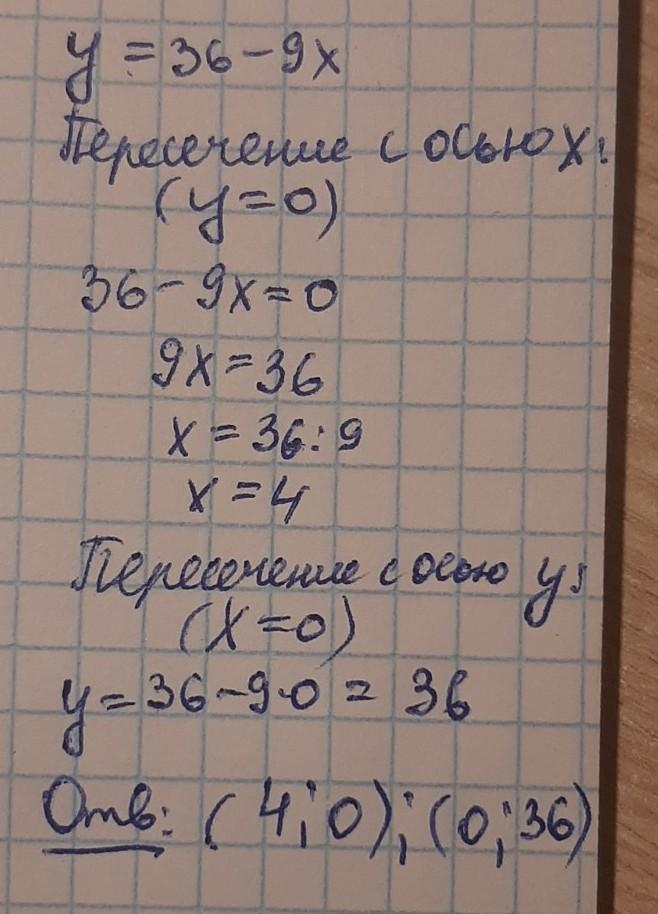 y = 36 - 9x
Пересечение с осью x:
(y = 0)
36 - 9x = 0
9x = 36
x = 36 : 9
x = 4
Пересечение с осою y:
(x = 0)
y = 36 - 9·0 = 36
Отв: (4; 0); (0; 36)